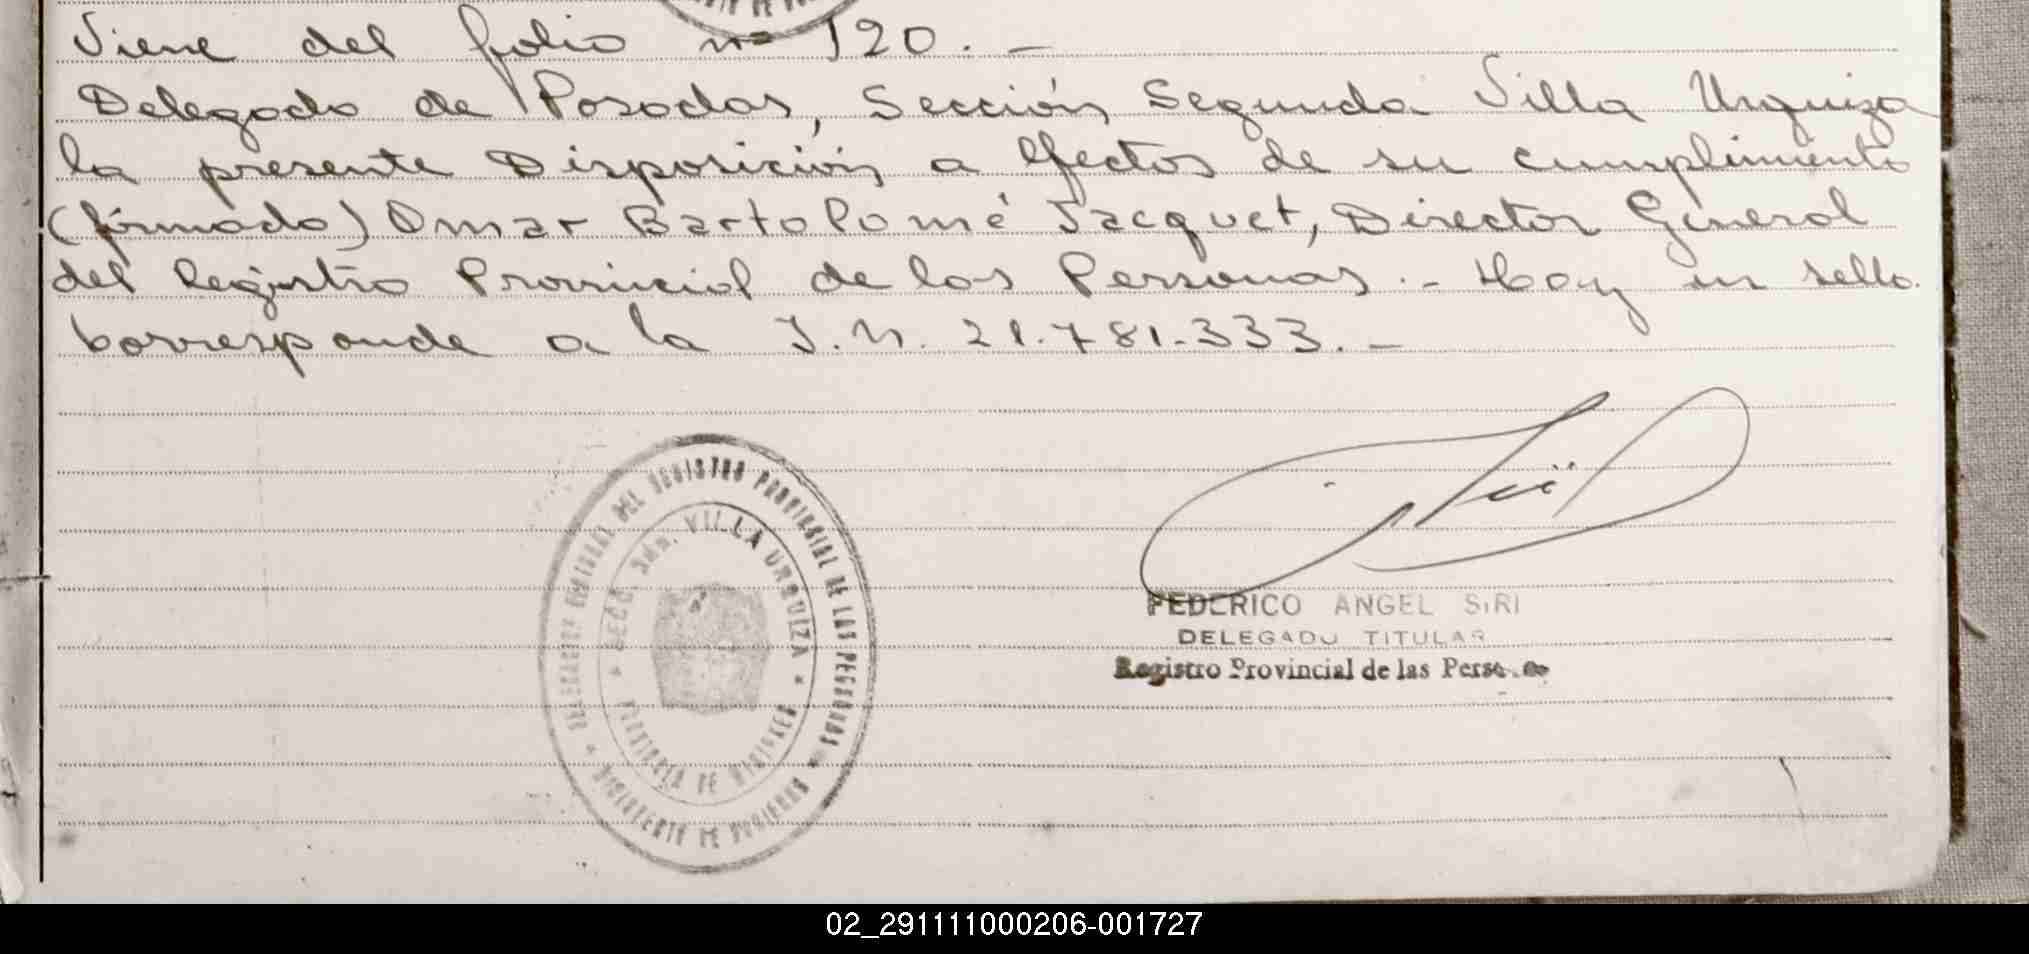 Viene del folio nº 120. -
Delegado de Posadas, Sección Segunda Villa Urquiza
la presente Disposición a efectos de su cumplimiento
(firmado) Omar Bartolomé Jacquet, Director General
del Registro Provincial de las Personas. - Hay un sello.
Corresponde a la I.N. 21.781.333. -
DEL REGISTRO PROVINCIAL DE LAS PERSONAS
SECC. 2da. VILLA URQUIZA
PROVINCIA DE MISIONES
FEDERICO ANGEL SIRI
DELEGADO TITULAR
Registro Provincial de las
02_291111000206-001727